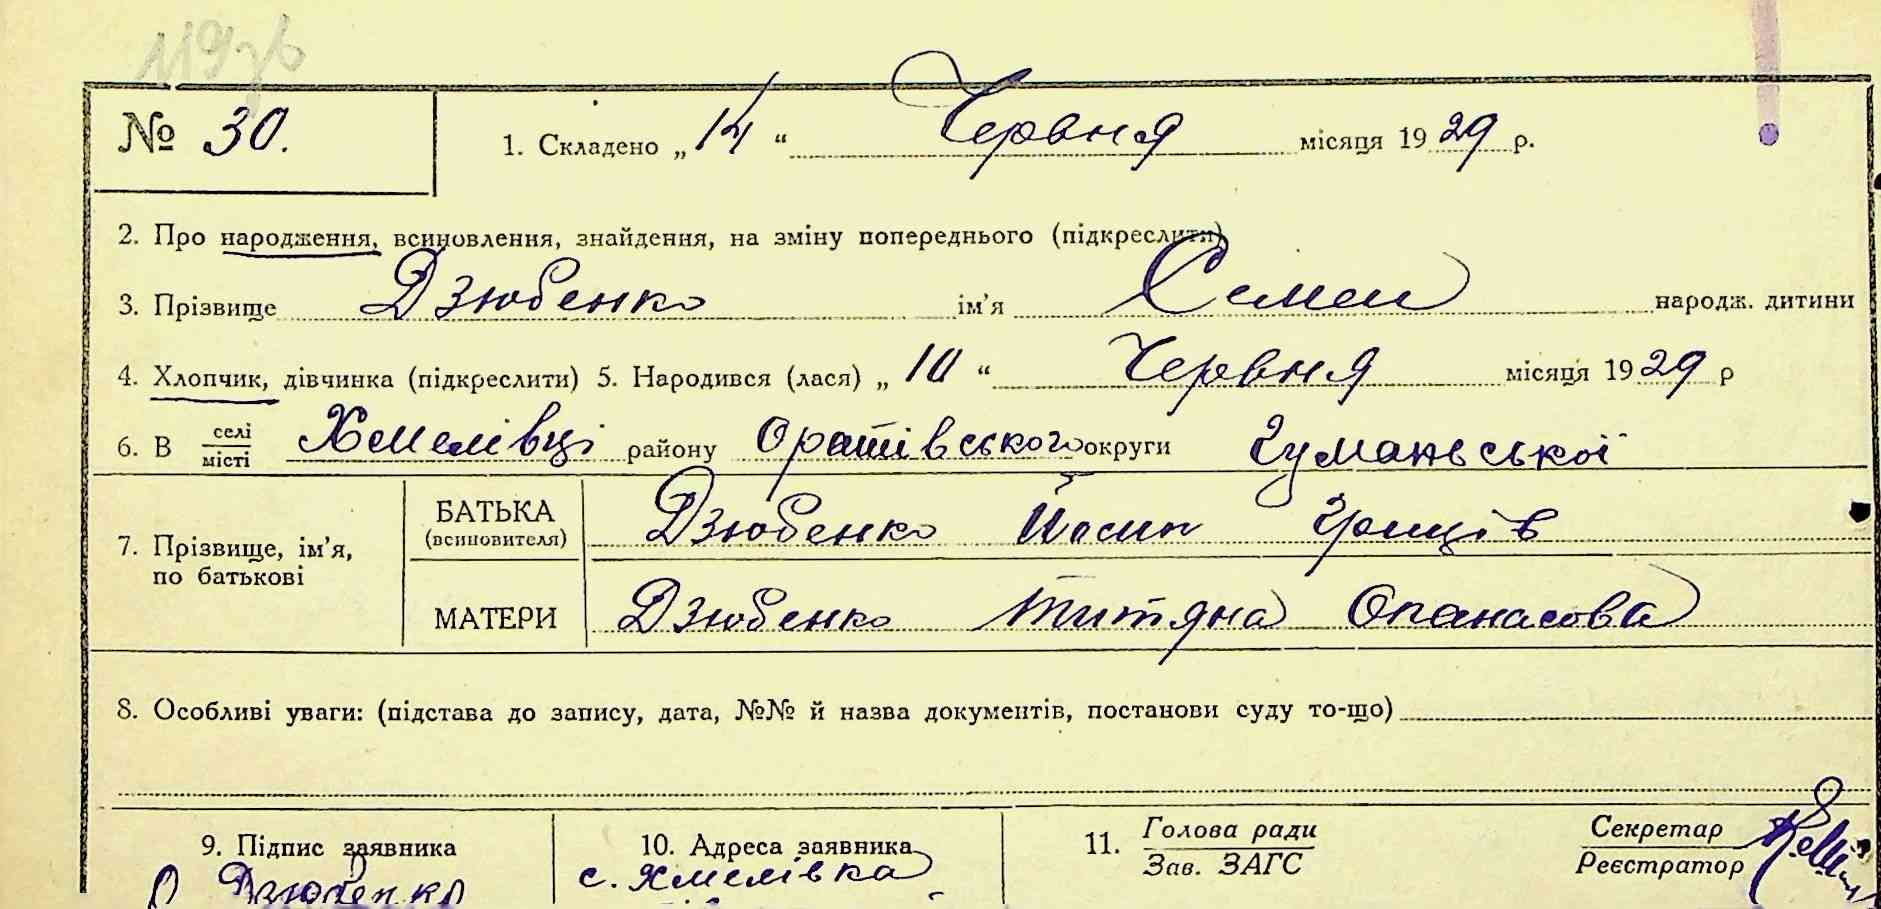 119 зв
№ 30.
1. Складено „14“ Червня місяця 1929 р.
2. Про народження, всиновлення, знайдення, на зміну попереднього (підкреслити)
3. Прізвище Дзюбенко ім’я Семен народж. дитини
4. Хлопчик, дівчинка (підкреслити) 5. Народився (лася) „10“ Червня місяця 1929 р
6. В селі місті Хмелівці району Оратівського округи Гуманьської
7. Прізвище, ім’я, по батькові
БАТЬКА (всиновителя) Дзюбенко Йосип Гриців
МАТЕРИ Дзюбенко Титяна Опанасова
8. Особливі уваги: (підстава до запису, дата, №№ й назва документів, постанови суду то-що)
9. Підпис заявника
Дзюбенко
10. Адреса заявника
с. Хмелівка
11. Голова ради
Зав. ЗАГС
Секретар
Реєстратор